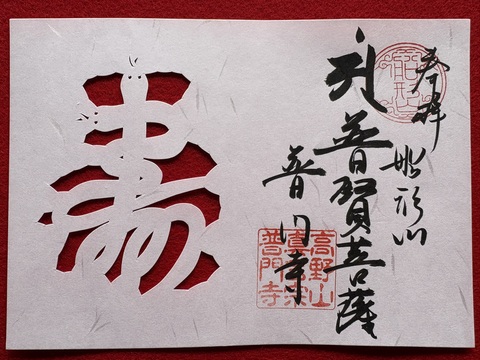 奉拝
船形山
普賢菩薩
普門寺
高野山
真言宗
普門寺
寿